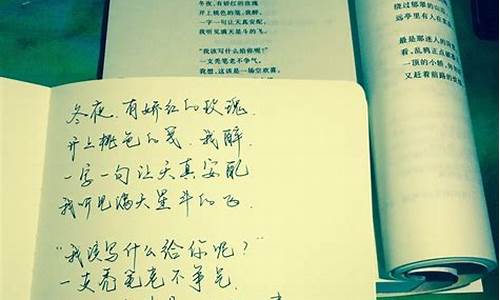 冬夜，有娇红的玫瑰
开上桃色的笺，我醉，
一字一句让天真安配
我听见满天星斗的飞，
“我该写什么给你呢？”
一支秃笔老不争气，
我想，这该是一场空欢喜，
绕过郁翠的山
远亭里有人在
最是那迷人的
看，乱鸦正点
一顶的小轿，
又赶着前路的
冬夜，有娇红的玫瑰，
开上桃色的笺，我醉，
一字一句让天真安配
我听见满天星斗的飞，
“我该写什么给你呢？”
一支秃笔老不争气，